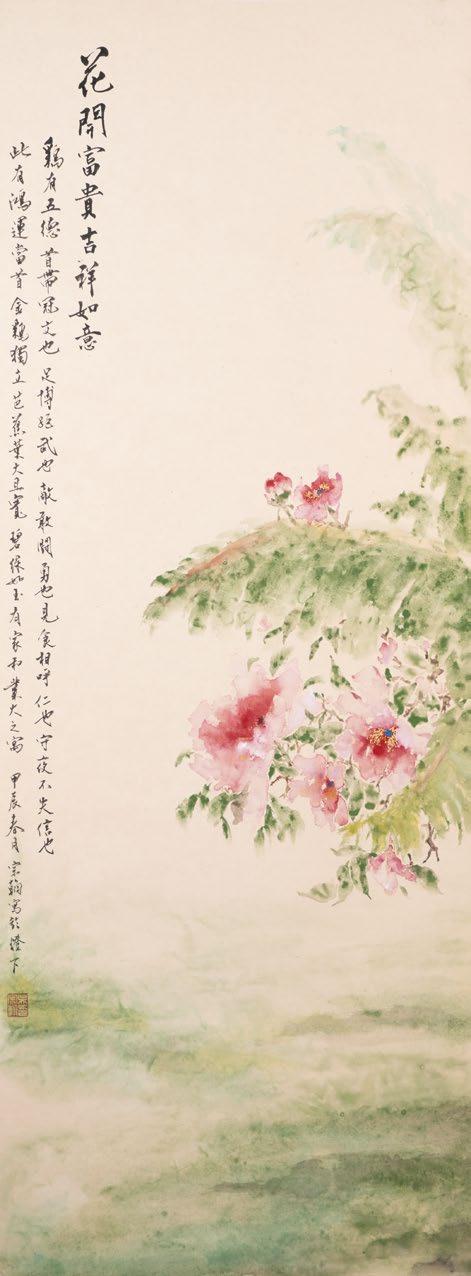 花開富貴吉祥如意
鷄有五德首帶冠文也足博距武也敵敢鬪勇也見食相呼仁也守夜不失信也
此有鴻運當首金鷄獨立芭蕉葉大且寬碧綠如玉有家和業大之寓甲辰春月宗翰寫於燈下